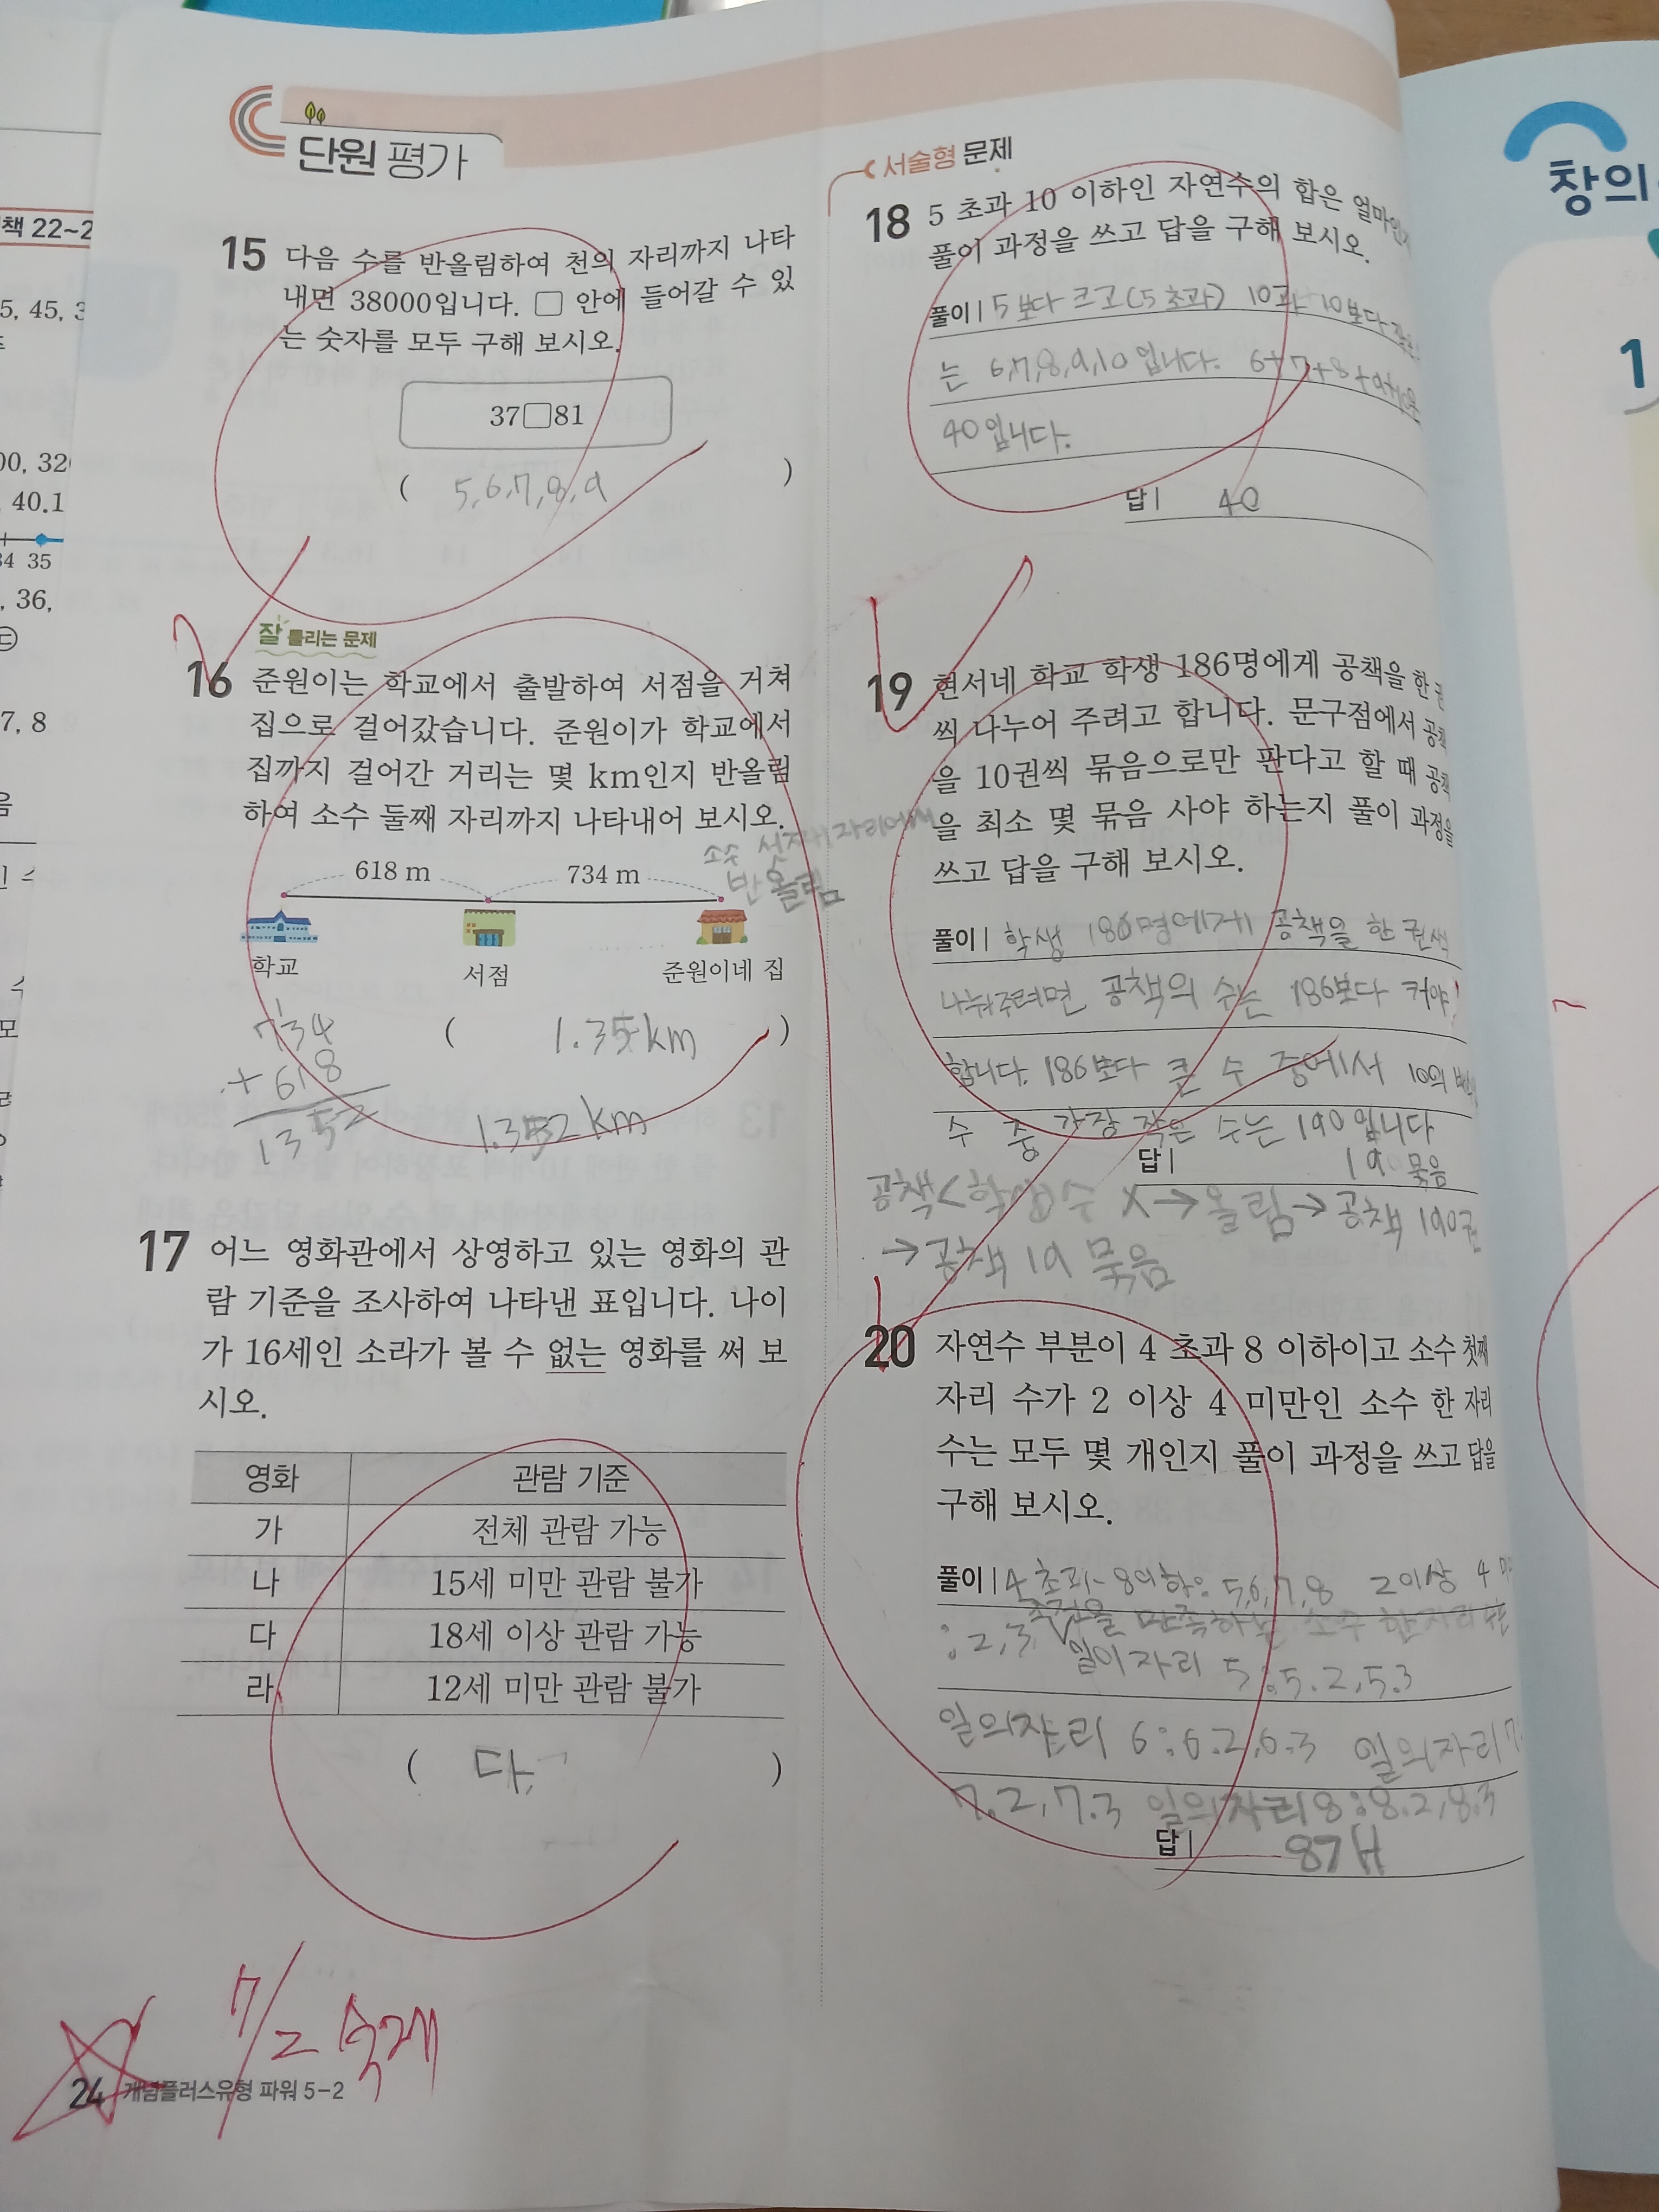 단원 평가
책 22~2
5, 45, 3
00, 320
, 40.1
34 35
, 36,
㉢
7, 8
15 다음 수를 반올림하여 천의 자리까지 나타
내면 38000입니다. □ 안에 들어갈 수 있
는 숫자를 모두 구해 보시오.
37□81
( 5,6,7,8,9 )
잘 틀리는 문제
16 준원이는 학교에서 출발하여 서점을 거쳐
집으로 걸어갔습니다. 준원이가 학교에서
집까지 걸어간 거리는 몇 km인지 반올림
하여 소수 둘째 자리까지 나타내어 보시오.
소수 셋째자리에서
반올림
618 m 734 m
학교 서점 준원이네 집
1
734
+618
1352
( 1.35km )
1.352km
17 어느 영화관에서 상영하고 있는 영화의 관
람 기준을 조사하여 나타낸 표입니다. 나이
가 16세인 소라가 볼 수 없는 영화를 써 보
시오.
영화 관람 기준
가 전체 관람 가능
나 15세 미만 관람 불가
다 18세 이상 관람 가능
라 12세 미만 관람 불가
( 다 )
7/2 숙제
24 개념플러스유형 파워 5-2
서술형 문제
18 5 초과 10 이하인 자연수의 합은 얼마인지
풀이 과정을 쓰고 답을 구해 보시오.
풀이 | 5보다 크고(5초과) 10과 10보다
는 6,7,8,9,10입니다. 6+7+8+9+10은
40입니다.
답 | 40
19 현서네 학교 학생 186명에게 공책을 한 권
씩 나누어 주려고 합니다. 문구점에서 공책
을 10권씩 묶음으로만 판다고 할 때 공책
을 최소 몇 묶음 사야 하는지 풀이 과정을
쓰고 답을 구해 보시오.
풀이 | 학생 186명에게 공책을 한 권씩
나눠주려면 공책의 수는 186보다 커야
합니다. 186보다 큰 수 중에서 10의
수 중 가장 작은 수는 190입니다
답 | 19 묶음
공책<학생수 X→올림→공책 190권
→공책 19 묶음
20 자연수 부분이 4 초과 8 이하이고 소수 첫째
자리 수가 2 이상 4 미만인 소수 한 자리
수는 모두 몇 개인지 풀이 과정을 쓰고 답을
구해 보시오.
풀이 | 4초과 8이하: 5,6,7,8 2이상 4
:2,3 조건을 만족하는 소수 한자리 수는
일의자리 5:5.2,5.3
일의자리 6:6.2,6.3 일의자리 7:
7.2,7.3 일의자리8:8.2,8.3
답 | 8개
창의
1